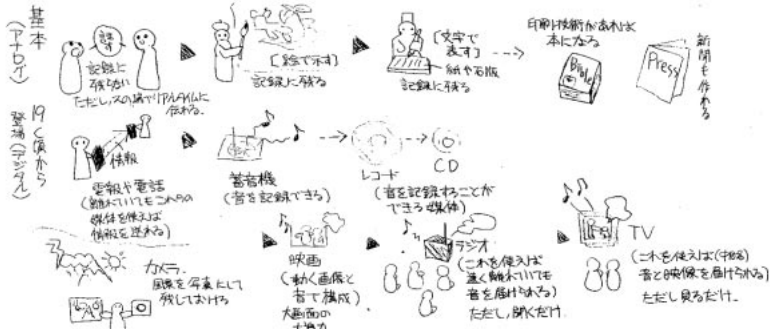 基本
(アナログ)
話す
記録に
残らない
ただし、その場でリアルタイムに
伝わる。
[絵で示す]
記録に残る
[文字で
表す]
紙や石版
記録に残る
印刷技術があれば
本になる
Bible
Press
新聞も作れる
19C頃から
登場(デジタル)
情報
電報や電話
(離れていてもこれらの
媒体を使えば
情報を送れる)
蓄音機
(音を記録できる)
レコード
CD
(音を記録することが
できる媒体)
カメラ.
風景を写真にして
残しておける
映画
(動く画像と
音で構成)
大画面の
ラジオ
(これを使えば
遠く離れていても
音を届けられる)
ただし、聞くだけ.
TV
(これを使えば
音と映像を届けられる)
ただし見るだけ.